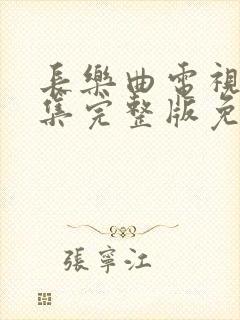 長樂曲電視
集完整版免
張寧江